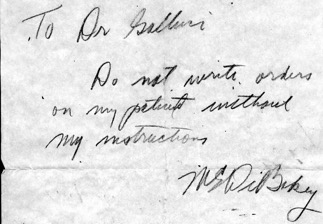 To Dr Gallini
Do not write orders
on my patients without
my instructions
M E DeBakey